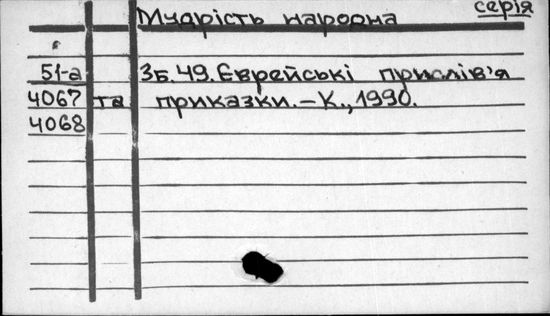 серія
Мудрість народна
51-а Зб.49. Єврейські прислів'я
4067 та приказки.-К.,1990.
4068